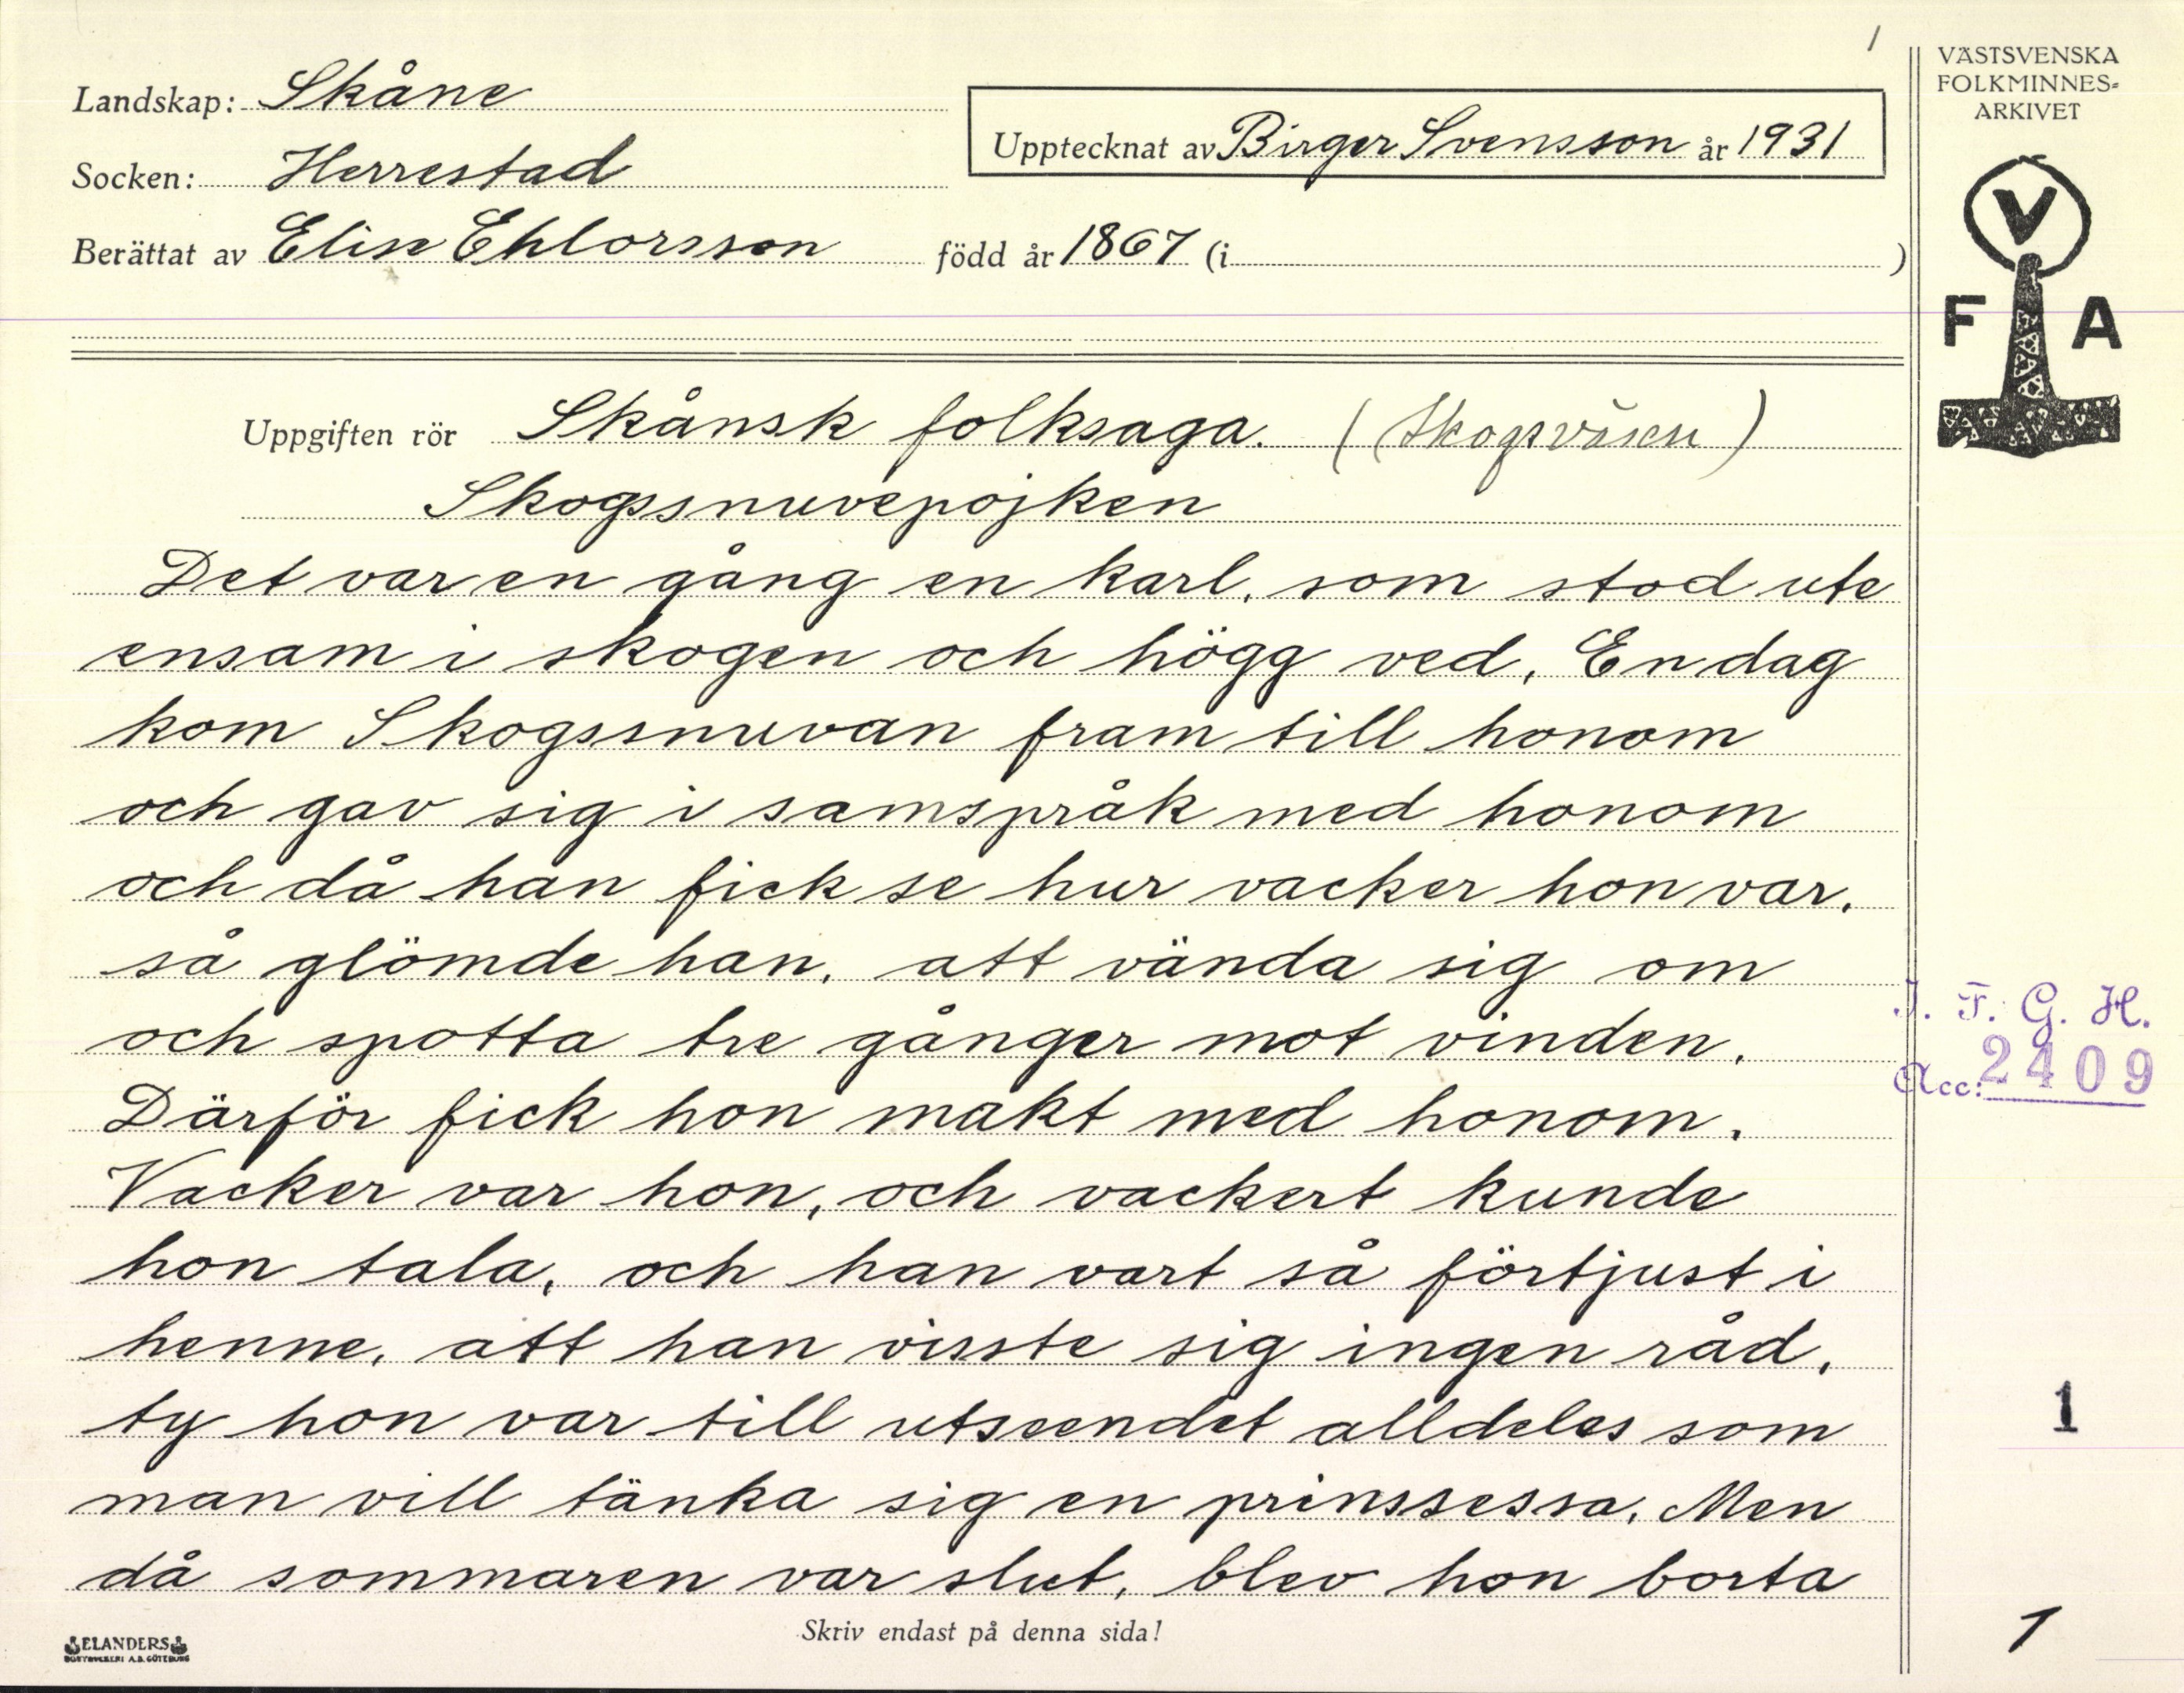 1
VÄSTSVENSKA
FOLKMINNES-
ARKIVET
Landskap: Skåne
Upptecknat av Birger Svensson år 1931
Socken: Herrestad
Berättat av Elise Ehlorsson född år 1867 (i )
V
F A
Uppgiften rör Skånsk folksaga. (Skogsväsen)
Skogssnuvepojken
Det var en gång en karl, som stod ute
ensam i skogen och högg ved. En dag
kom Skogssnuvan fram till honom
och gav sig i samspråk med honom
och då han fick se hur vacker hon var,
så glömde han, att vända sig om
och spotta tre gånger mot vinden.
Därför fick hon makt med honom.
Vacker var hon, och vackert kunde
hon tala, och han vart så förtjust i
henne, att han visste sig ingen råd,
ty hon var till utseendet alldeles som
man vill tänka sig en prinssessa. Men
då sommaren var slut, blev hon borta
I. F. G. H.
Acc: 2409
1
Skriv endast på denna sida!
ELANDERS
BOKTRYCKERI A.B. GÖTEBORG
1